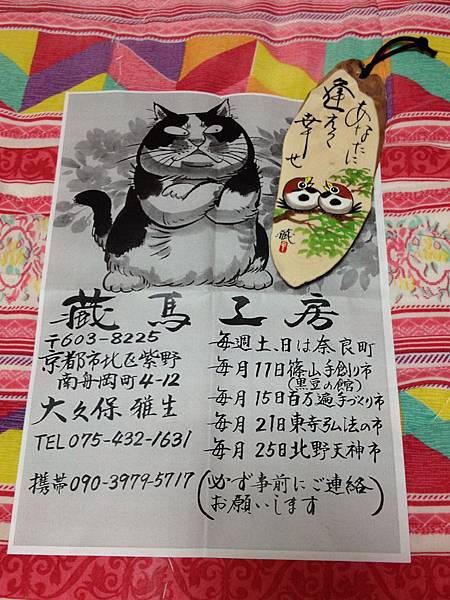 あなたに
逢えて
幸せ
藏
藏馬工房
〒603-8225
京都市北区紫野
南舟岡町4-12
大久保 雅生
TEL 075-432-1631
携帯 090-3979-5717
毎週土、日は奈良町
毎月11日篠山手創り市
(黒豆の館)
毎月15日百万遍手づくり市
毎月21日東寺弘法の市
毎月25日北野天神市
(必ず事前にご連絡
お願いします)